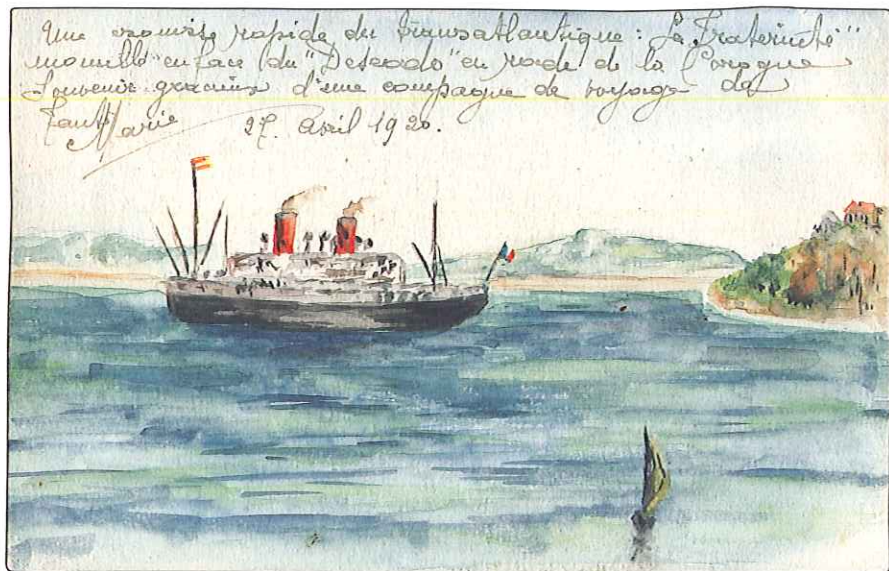 Une esquisse rapide du transatlantique: "La Fraternité"
mouillé en face du "Deseado" en rade de la Corogne
Souvenir gracieux d'une compagne de voyage de
Tante Marie 27 avril 1920.